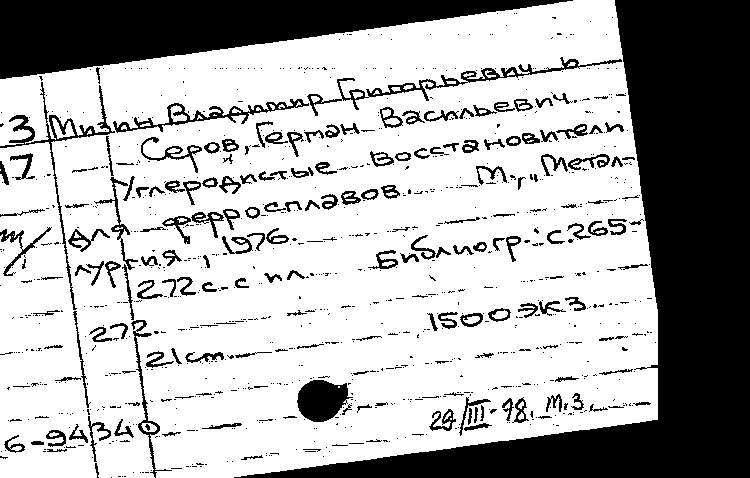 -3 Мизин, Владимир Григорьевич и
17 Серов, Герман Васильевич.
Углеродистые восстановители
для ферросплавов. М., „Метал-
лургия", 1976.
272 с. с ил. Библиогр.: с. 265-
272.
1500 экз.
21 cm.
6-94340
29/III-78. М.З.